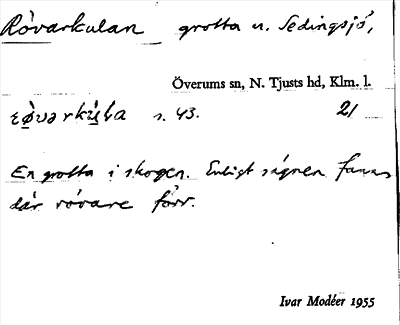 Rövarkulan grotta n. Sedingsjö,
Överums sn, N. Tjusts hd, Klm. l.
s. 43. 21
En grotta i skogen. Enligt sägnen fanns
där rövare förr.
Ivar Modéer 1955